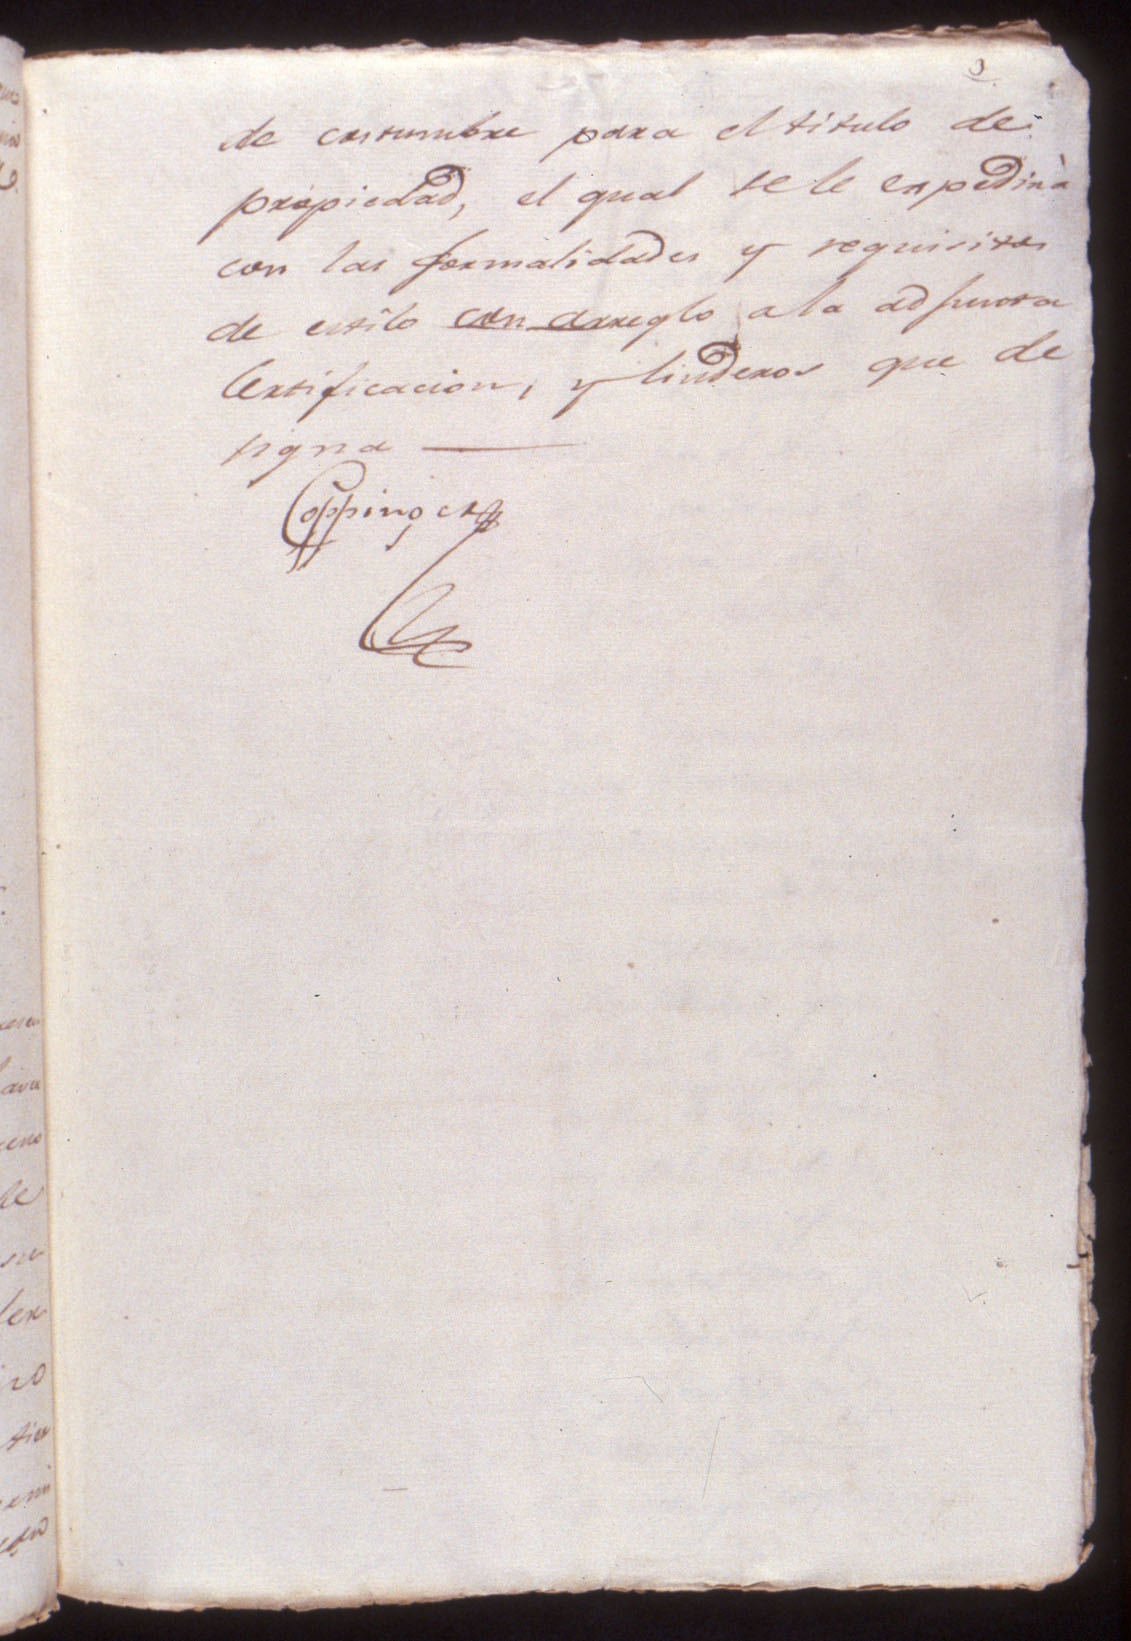 3
de costumbre para el titulo de
propiedad, el qual se le expedirà
con las formalidades y requisitos
de estilo con arreglo a la adjunta
Certificacion, y linderos que de
signa
Coppinger